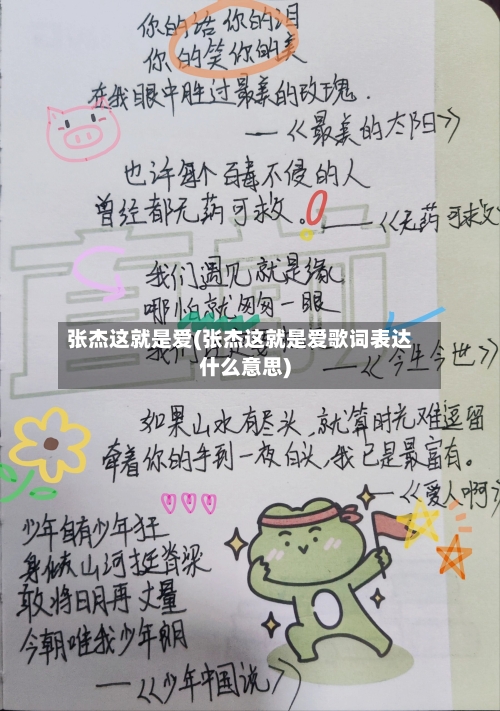 你的话你的泪
你的笑你的美
在我眼中胜过最美的玫瑰.
—《最美的太阳》
也许每个百毒不侵的人
曾经都无药可救。
—《无药可救》
我们遇见就是缘
哪怕就匆匆一眼
张杰这就是爱(张杰这就是爱歌词表达
什么意思)
我们
—《今生今世》
如果山水有尽头,就算时光难逗留
牵着你的手到一夜白头,我已是最富有。
—《爱人啊》
少年自有少年狂
身似山河挺脊梁
敢将日月再丈量
今朝唯我少年朗
—《少年中国说》